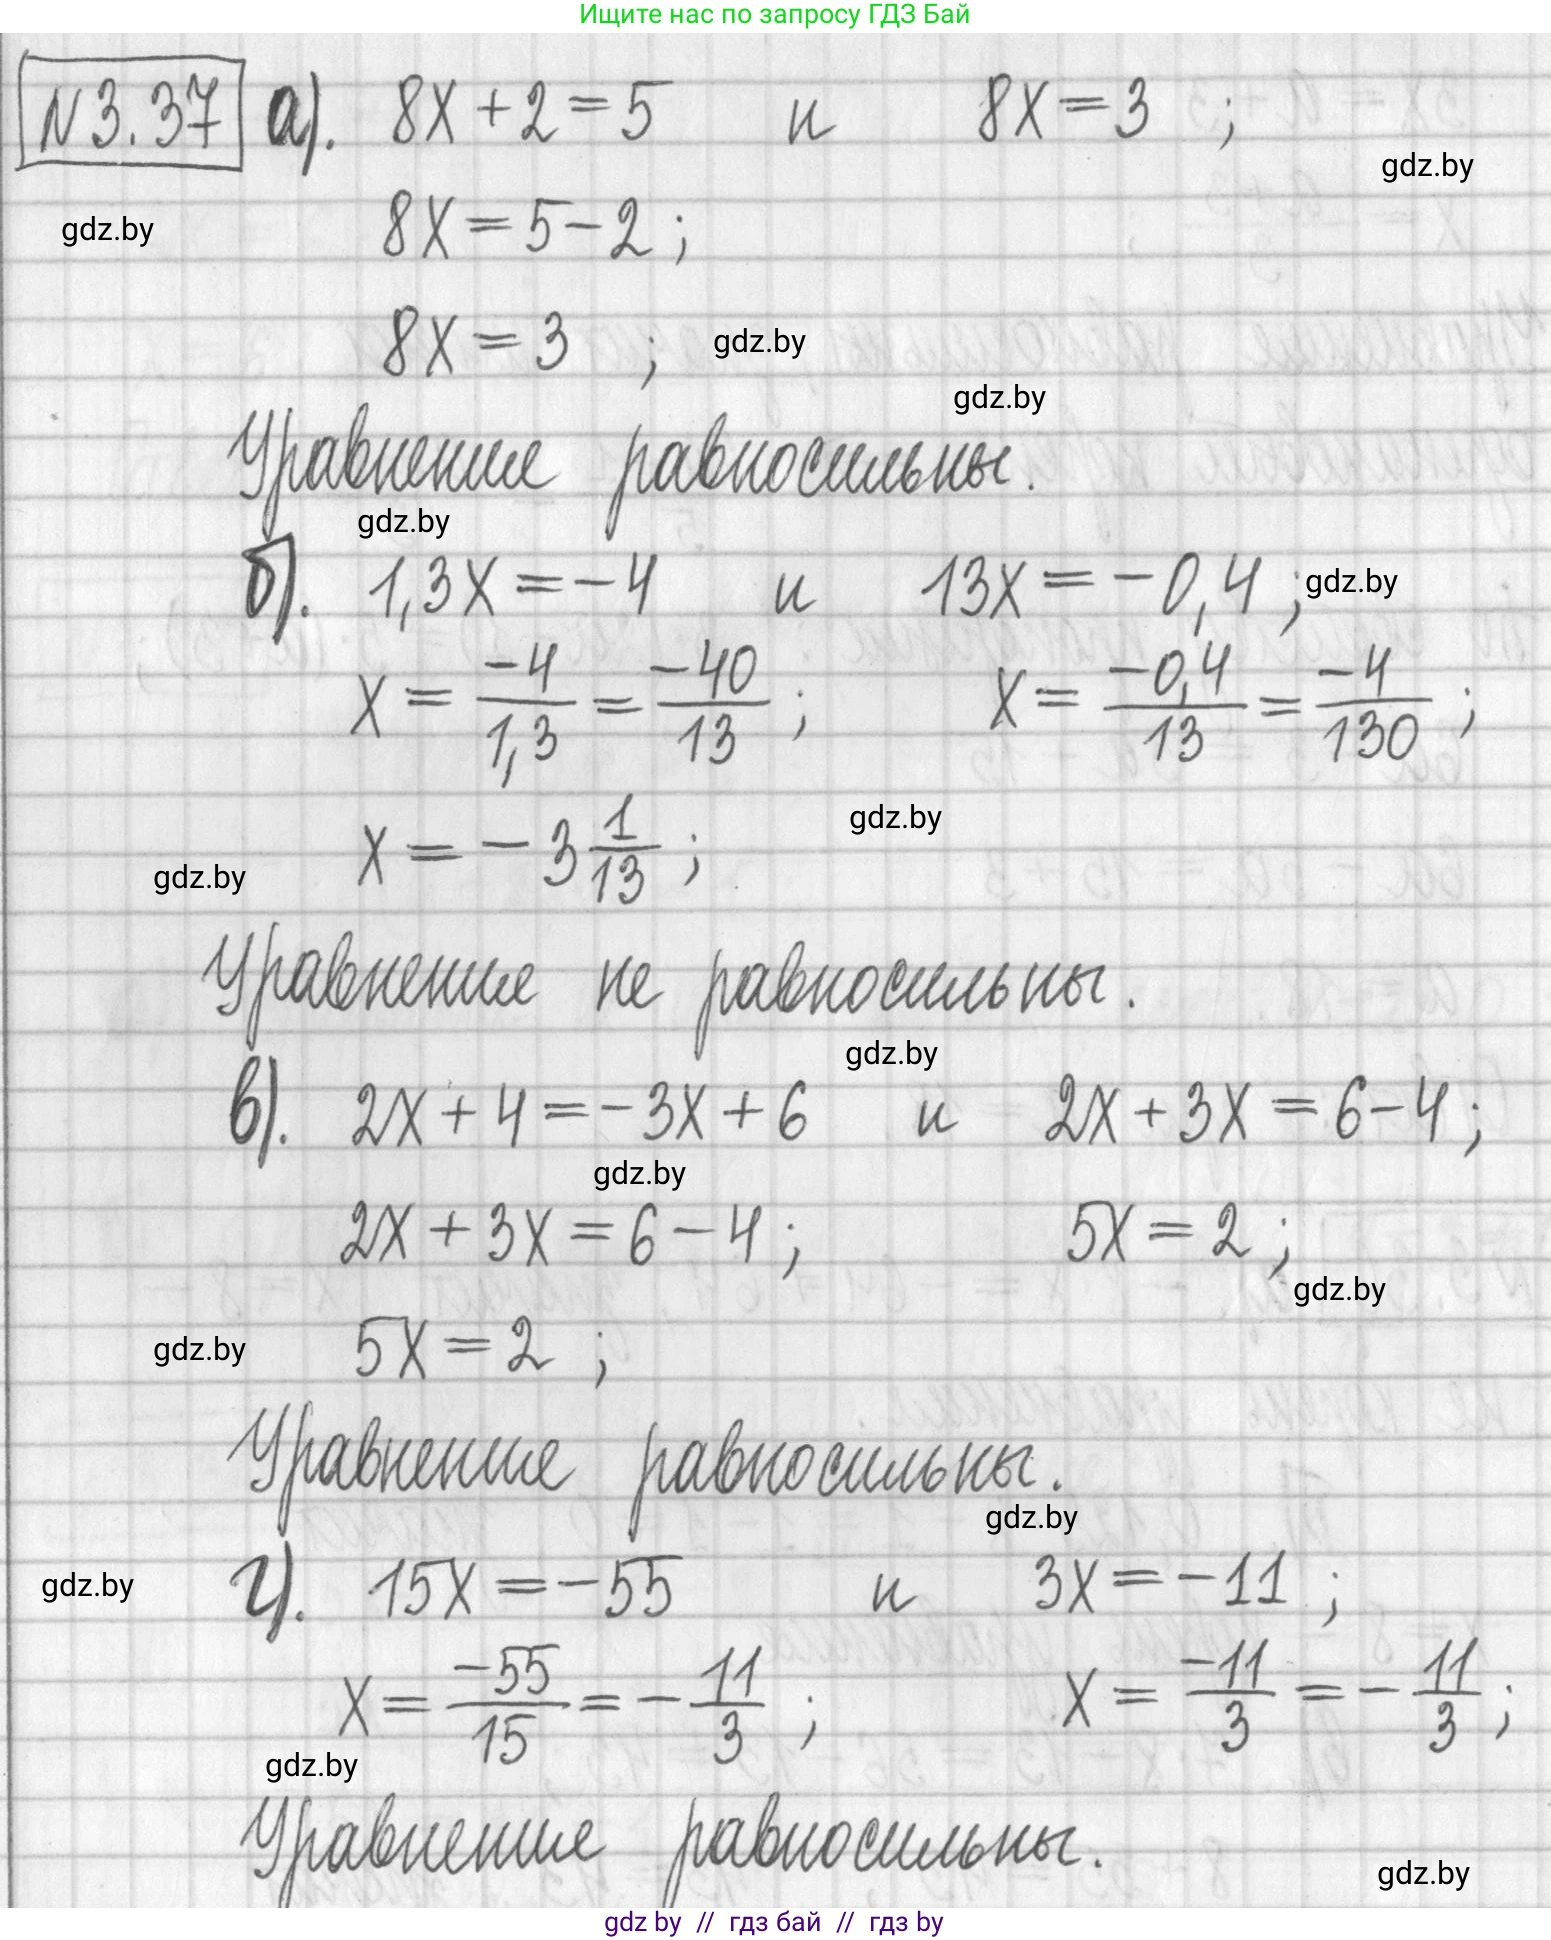 Ищите нас по запросу ГДЗ Бай
N 3.37 а). 8x + 2 = 5 и 8x = 3 ;
gdz.by
gdz.by
8x = 5 - 2 ;
8x = 3 ;
gdz.by
gdz.by
Уравнение равносильны.
gdz.by
б). 1,3x = -4 и 13x = -0,4 ;
gdz.by
x = -4/1,3 = -40/13 ; x = -0,4/13 = -4/130 ;
x = -3 1/13 ;
gdz.by
gdz.by
Уравнение не равносильны.
gdz.by
в). 2x + 4 = -3x + 6 и 2x + 3x = 6 - 4 ;
gdz.by
2x + 3x = 6 - 4 ; 5x = 2 ;
gdz.by
5x = 2 ;
gdz.by
Уравнение равносильны.
gdz.by
г). 15x = -55 и 3x = -11 ;
gdz.by
x = -55/15 = - 11/3 ; x = -11/3 = - 11/3 ;
gdz.by
Уравнение равносильны.
gdz.by
gdz by // гдз бай // гдз by